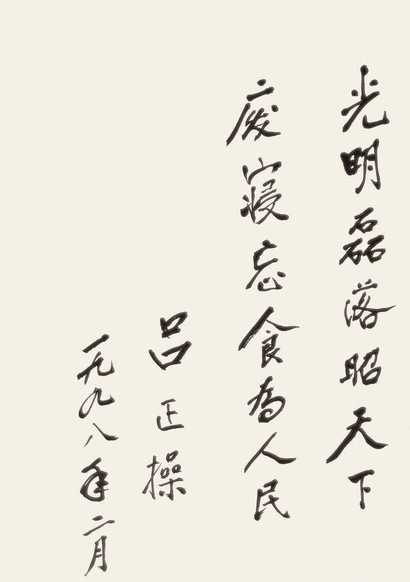 光明磊落昭天下
废寝忘食為人民
吕正操
一九九八年二月